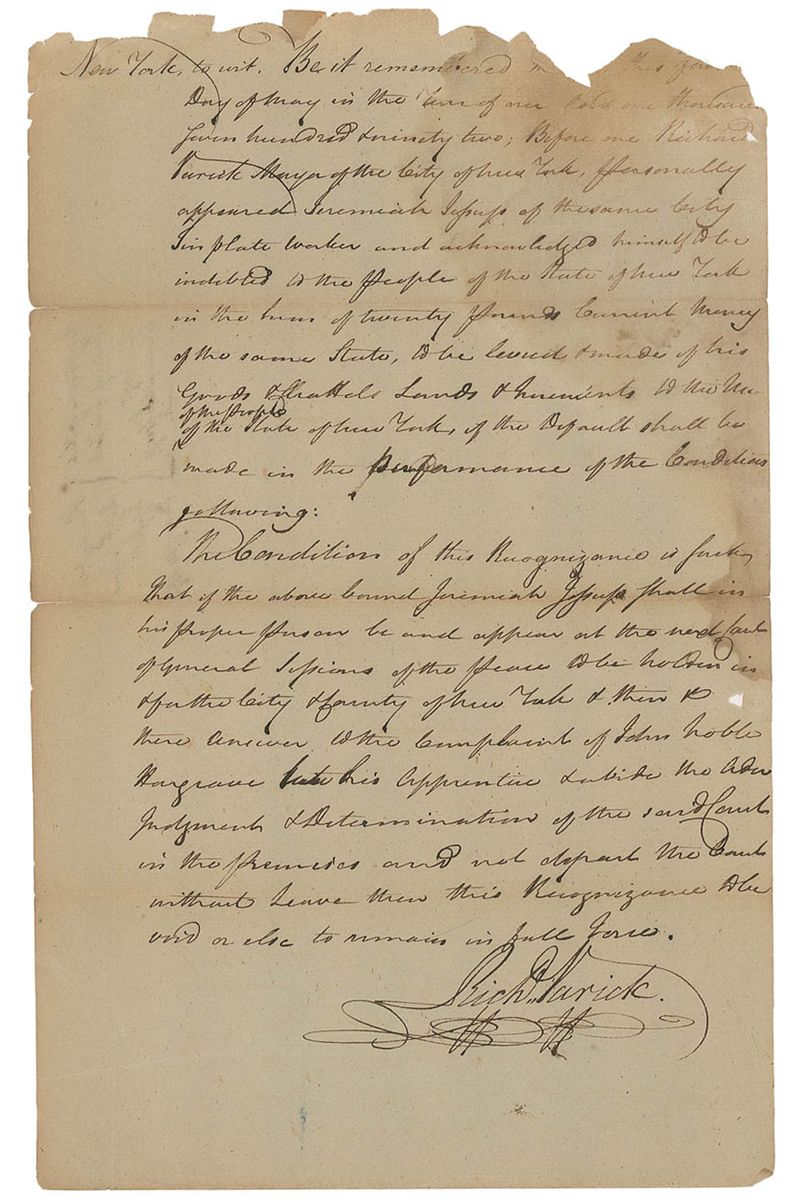 New York, to wit. Be it remembered this four
Day of May in the Year of our Lord one thousand
seven hundred & ninety two; Before me Richard
Varick Mayor of the City of New York, personally
appeared Jeremiah Jessup of the same City
Tin plate worker and acknowledged himself to be
indebted to the People of the State of New York
in the Sum of twenty pounds Current Money
of the same State, to be levied & made of his
Goods & Chattels Lands & Tenements to the Use
of the People
of the State of New York, if the Default shall be
made in the performance of the Condition
following:
The Condition of this Recognizance is such,
that if the above bound Jeremiah Jessup shall in
his proper person be and appear at the next Court
of General Sessions of the Peace to be holden in
& for the City & County of New York & then &
there answer to the Complaint of John Noble
Hargrave late his Apprentice & abide the Order
Judgment & Determination of the said Court
in the premises and not depart the Court
without Leave then this Recognizance to be
void or else to remain in full Force.
Richd. Varick.